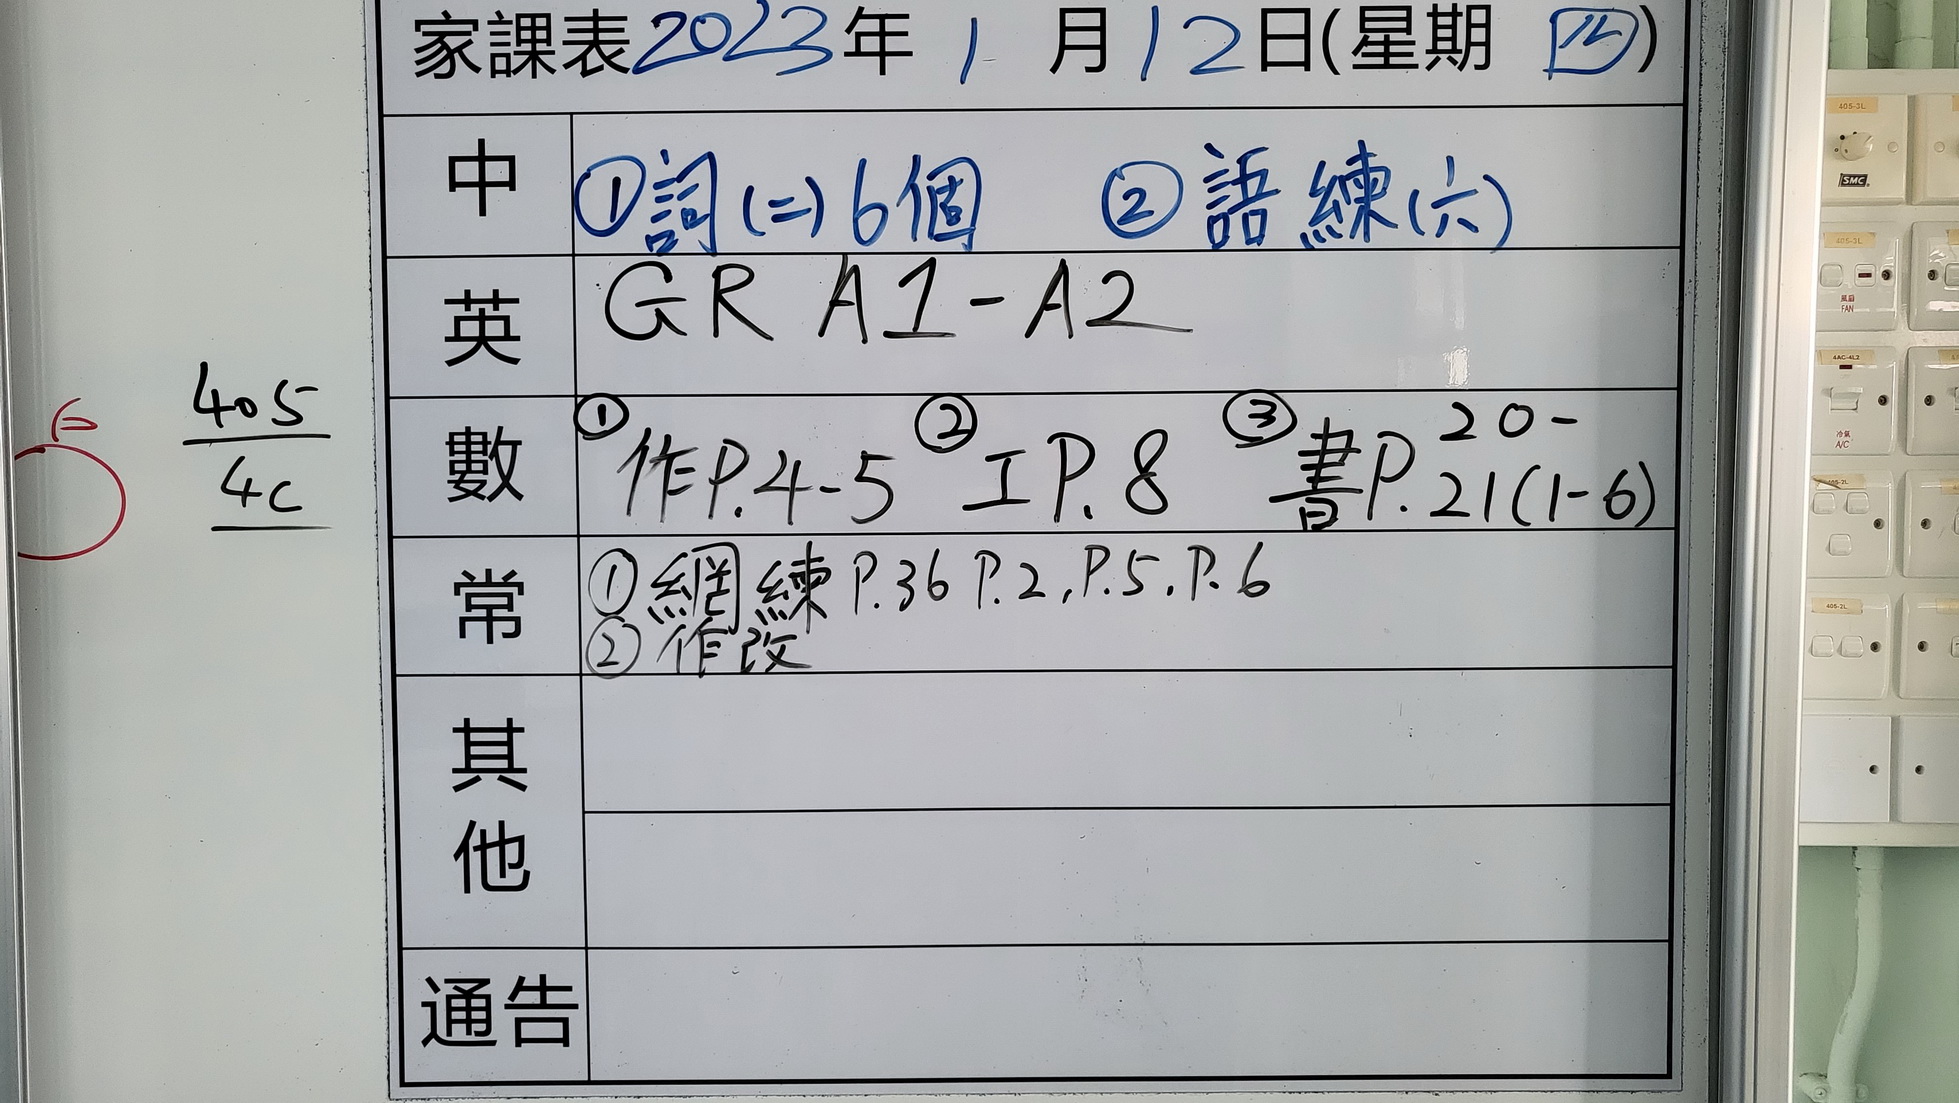 家課表2023年1月12日(星期四)
中 ①詞(二)6個 ②語練(六)
英 GR A1-A2
數 ①作P.4-5 ②工P.8 ③書P.20-21(1-6)
常 ①網練P.36 P.2,P.5,P.6
②作改
其他
通告
405
4C
405-3L
SMC
405-3L
風扇
FAN
4AC-4L2
冷氣
A/C
405-2L
405-2L